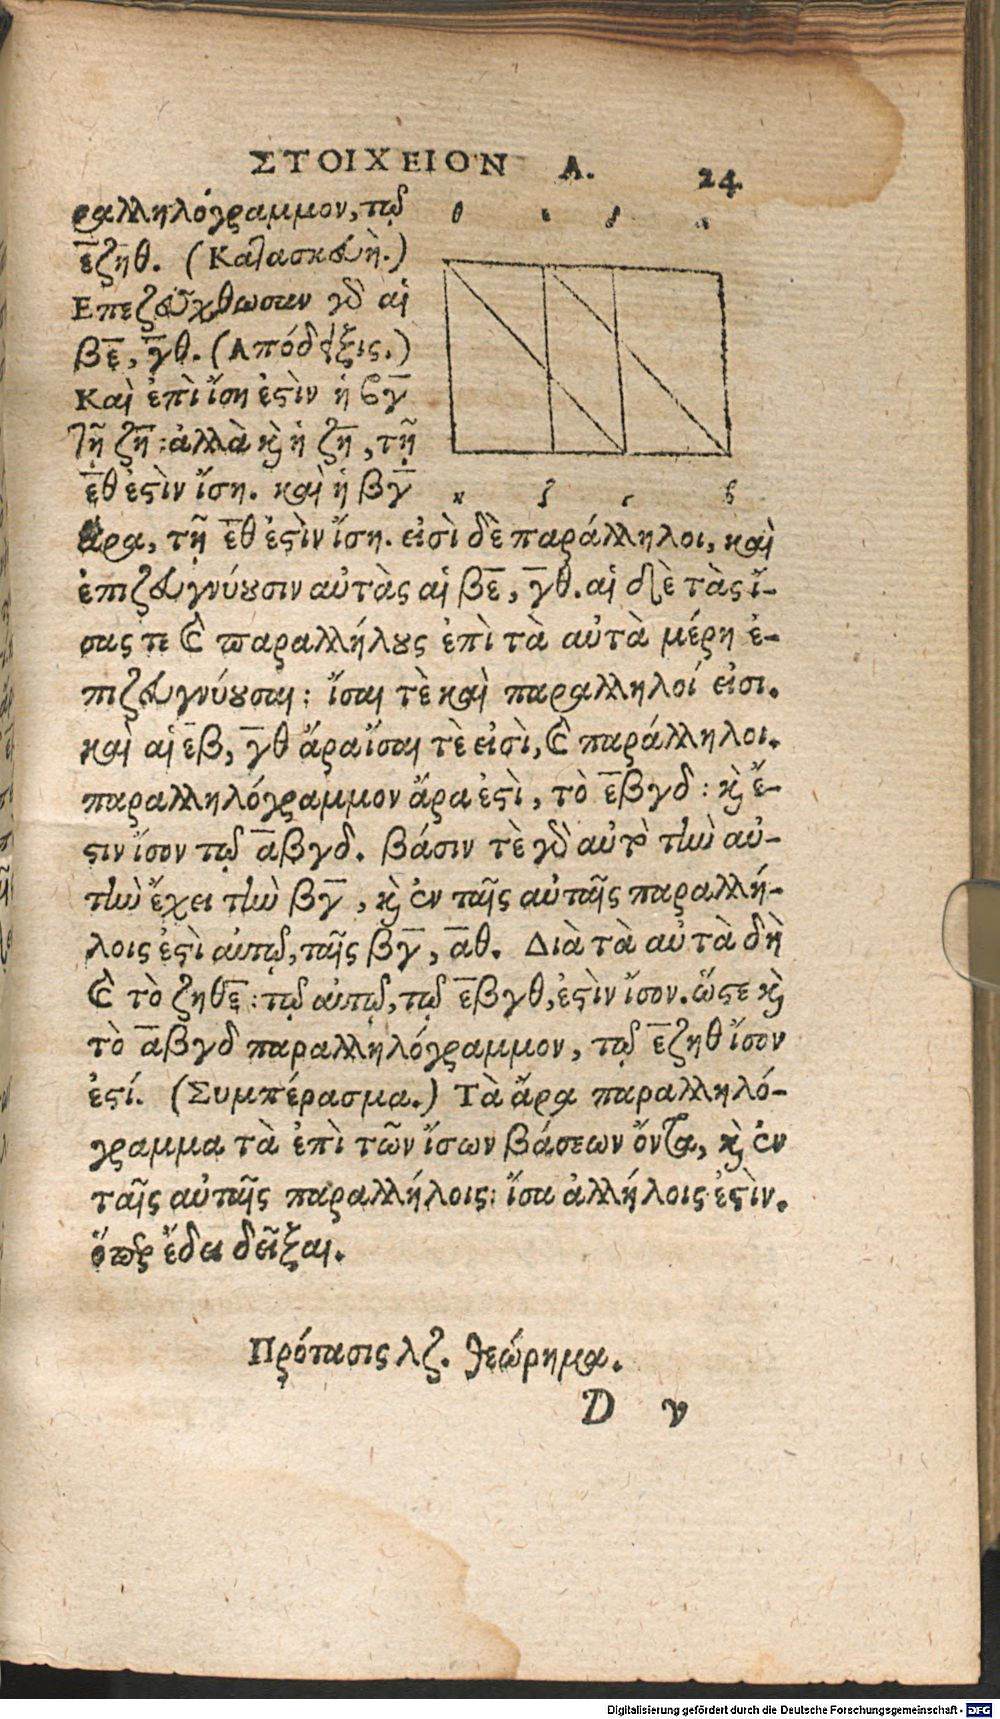 ΣΤΟΙΧΕΙΟΝ Α. 24
ραλληλόγραμμον, τῷ
ε̅ζηθ. (Κατασκευὴ.)
Επεζεύχθωσαν γὸ αἱ
βε̅, γ̅θ. (Απόδειξις.)
Καὶ ἐπὶ ἴση ἐϛὶν ἡ βγ̅
τῇ ζη̅: ἀλλὰ κὶ ἡ ζη̅, τῇ
ε̅θ ἐϛὶν ἴση. καὶ ἡ βγ̅
ἄρα, τῇ ε̅θ ἐϛὶν ἴση. εἰσὶ δὲ παράλληλοι, καὶ
ἐπιζευγνύουσιν αὐτὰς αἱ βε̅, γ̅θ. αἱ δὲ τὰς ἴ-
σας τε καὶ παραλλήλους ἐπὶ τὰ αὐτὰ μέρη ἐ-
πιζευγνύουσαι: ἴσαι τὲ καὶ παραλληλοί εἰσι.
καὶ αἱ ε̅β, γ̅θ ἄρα ἴσαι τὲ εἰσὶ, καὶ παράλληλοι.
παραλληλόγραμμον ἄρα ἐϛὶ, τὸ ε̅βγδ: κὶ ἔ-
ϛιν ἴσον τῷ α̅βγδ. βάσιν τὲ γὸ αὐτῷ τὴν αὐ-
τὴν ἔχει τὴν βγ̅, κὶ ἐν ταῖς αὐταῖς παραλλή-
λοις ἐϛὶ αὐτῷ, ταῖς βγ̅, α̅θ. Διὰ τὰ αὐτὰ δὴ
καὶ τὸ ζηθε̅: τῷ αὐτῷ, τῷ ε̅βγθ, ἐϛὶν ἴσον. ὥϛε κὶ
τὸ α̅βγδ παραλληλόγραμμον, τῷ ε̅ζηθ ἴσον
ἐϛί. (Συμπέρασμα.) Τὰ ἄρα παραλληλό-
γραμμα τὰ ἐπὶ τῶν ἴσων βάσεων ὄντα, κὶ ἐν
ταῖς αὐταῖς παραλλήλοις: ἴσα ἀλλήλοις ἐϛὶν.
ὅπερ ἔδει δεῖξαι.
Πρότασις λζ. θεώρημα.
D ν
Digitalisierung gefördert durch die Deutsche Forschungsgemeinschaft - DFG